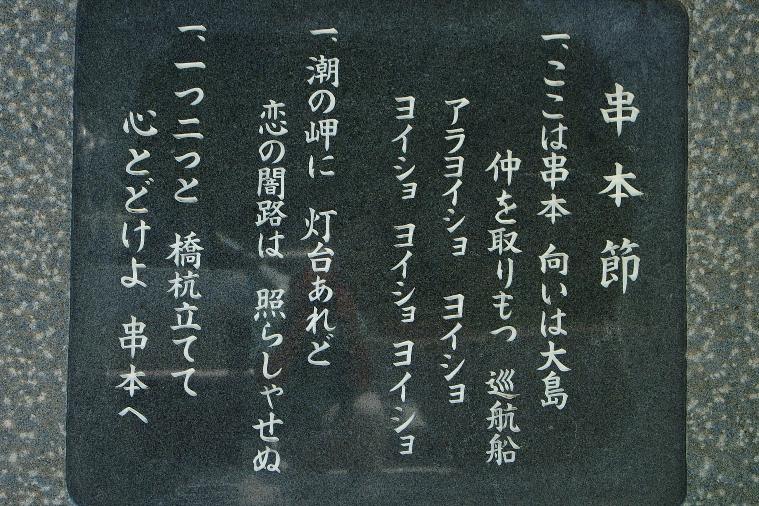 串本節
一、ここは串本 向いは大島
仲を取りもつ 巡航船
アラヨイショ ヨイショ
ヨイショ ヨイショ ヨイショ
一、潮の岬に 灯台あれど
恋の闇路は 照らしゃせぬ
一、一つ二つと 橋杭立てて
心とどけよ 串本へ